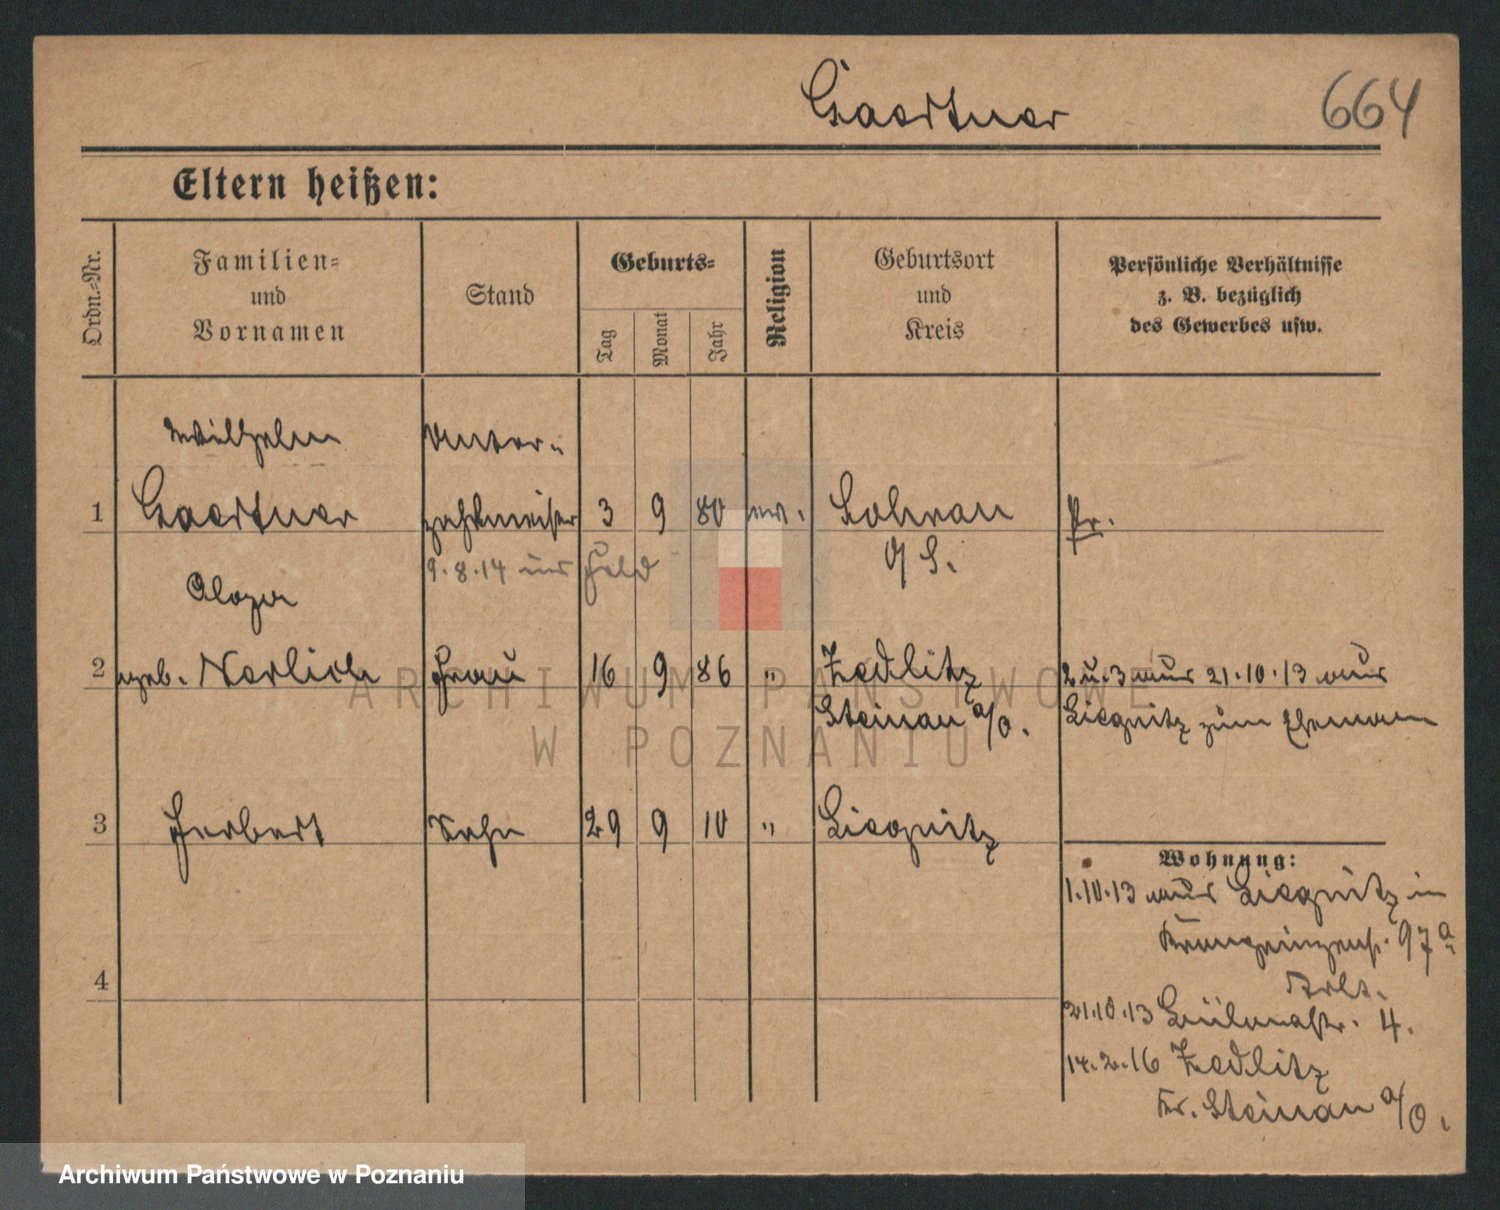 Gaertner
664
Eltern heißen:
Ordn.-Nr.
Familien-
und
Vornamen
Stand
Geburts-
Tag
Monat
Jahr
Religion
Geburtsort
und
Kreis
Persönliche Verhältnisse
z. B. bezüglich
des Gewerbes usw.
Wilhelm Unter-
1 Gaertner zahlmeister 3 9 80 ev. Sohrau Pr.
9.8.14 ins Feld O/S.
2 geb. Nerlich Frau 16 9 86 " Zedlitz 2 u. 3 aus 21.10.13 aus
Steinau a/O. Liegnitz zum Ehemann
3 Herbert Sohn 29 9 10 " Liegnitz
Wohnung:
1.10.13 aus Liegnitz in
Kronprinzenstr. 97a
4
21.10.13 4.
14.2.16 Zedlitz
Kr. Steinau a/O.
ARCHIWUM PAŃSTWOWE
W POZNANIU
Archiwum Państwowe w Poznaniu